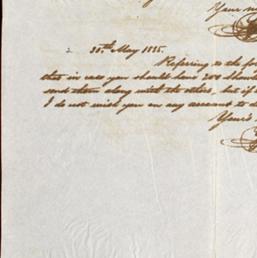 Your
30th May 1885.
Referring to the
then in case you should have 200
send them along with the others, but if
I do not wish you on any account to
Your's